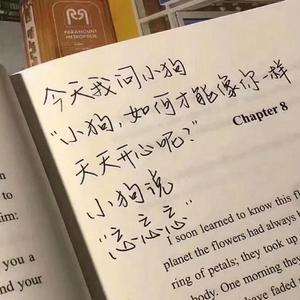 PARAMOUNT
METROPOLIS
今天我问小狗
"小狗,如何才能像你一样
天天开心呢?"
小狗说
"忘忘忘"
Chapter 8
I soon learned to know this fl
planet the flowers had always
ring of petals; they took up
body. One morning they
have faded
im:
you a
nd your